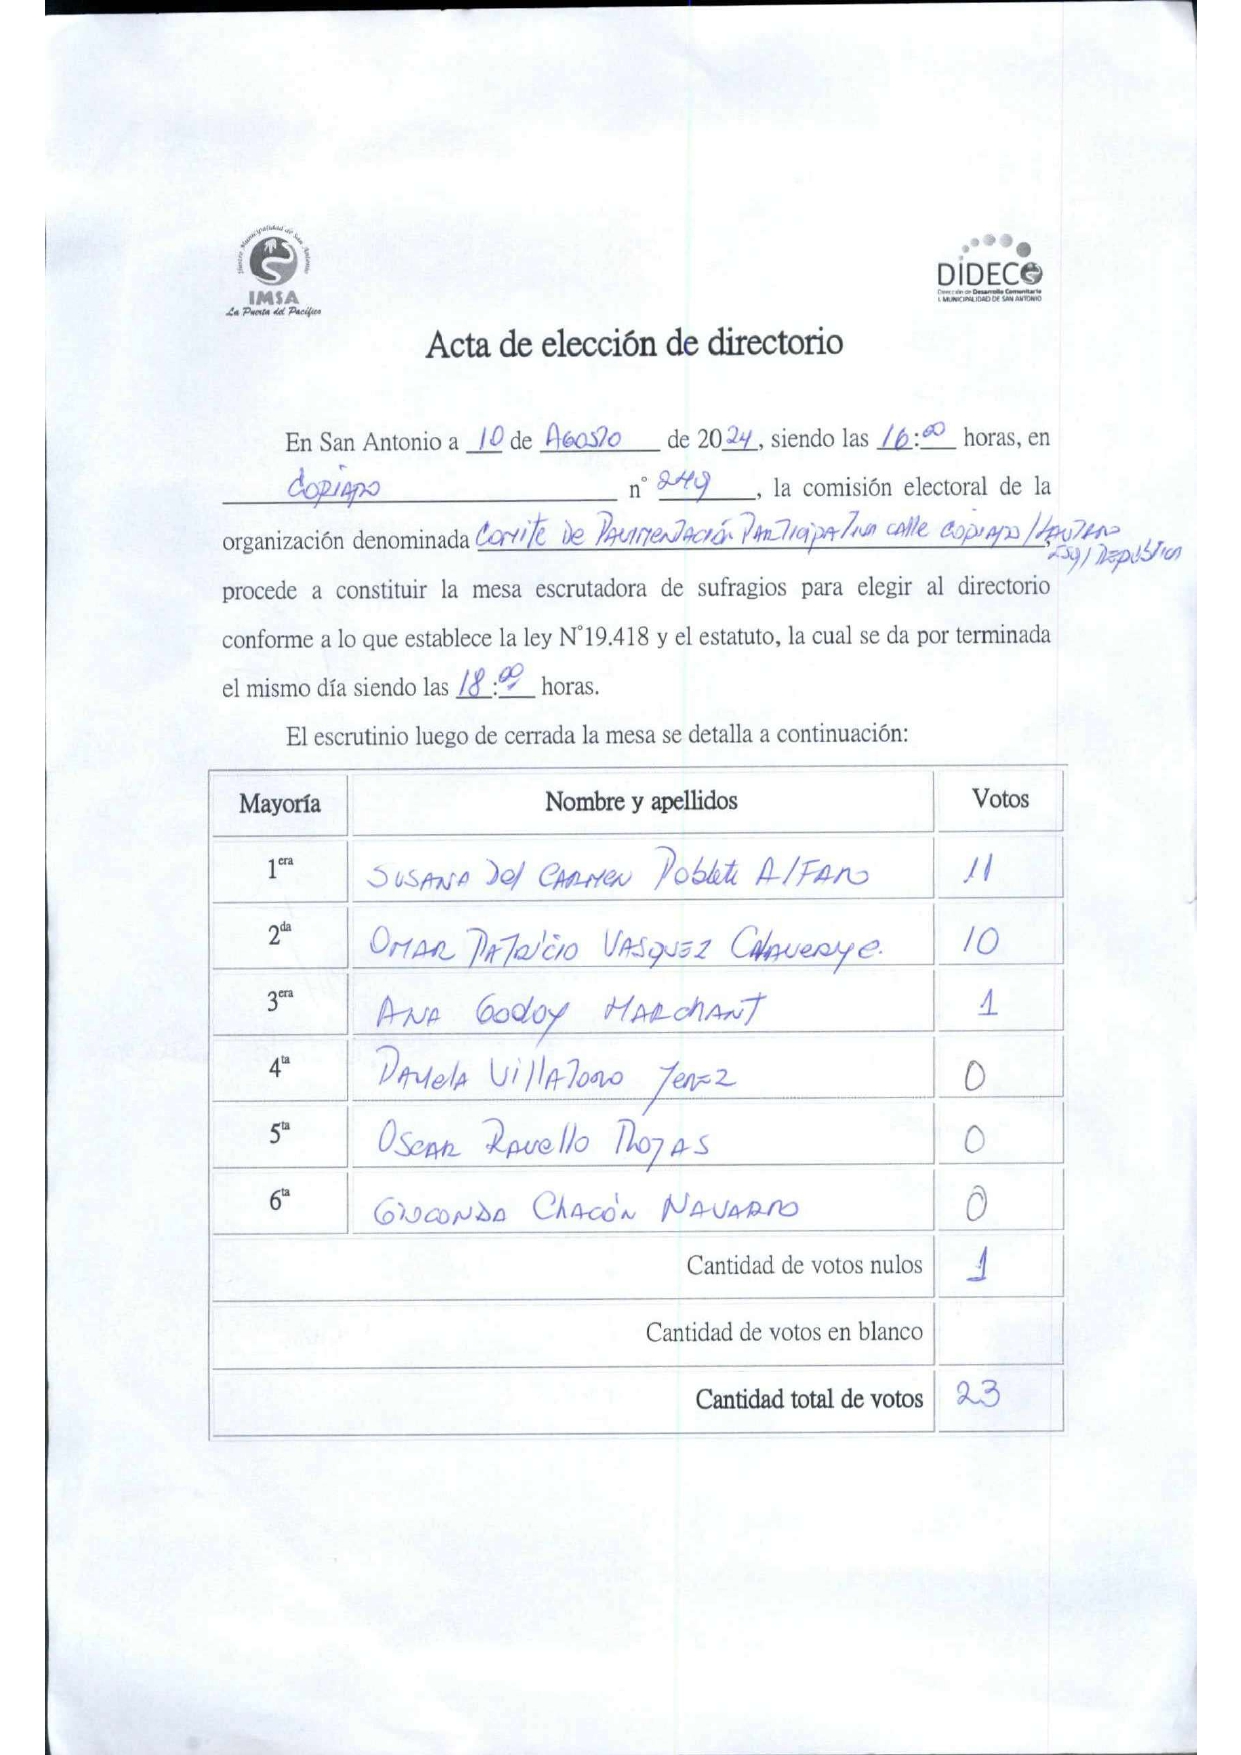 Ilustre Municipalidad de San Antonio
IMSA
La Puerta del Pacífico
DIDECO
Dirección de Desarrollo Comunitario
I. MUNICIPALIDAD DE SAN ANTONIO
Acta de elección de directorio
En San Antonio a 10 de Agosto de 2024, siendo las 16:00 horas, en
Copiapo n° 249, la comisión electoral de la
organización denominada Comite de Pavimentación Participativa calle Copiapo / Lautaro
Esq / Republica
procede a constituir la mesa escrutadora de sufragios para elegir al directorio
conforme a lo que establece la ley N°19.418 y el estatuto, la cual se da por terminada
el mismo día siendo las 18:00 horas.
El escrutinio luego de cerrada la mesa se detalla a continuación:
Mayoría Nombre y apellidos Votos
1era Susana Del Carmen Poblete Alfaro 11
2da Omar Patricio Vasquez 10
3era Ana Godoy Marchant 1
4ta Pamela Villatoro Jerez 0
5ta Oscar Ravello Rojas 0
6ta Gioconda Chacón Navarro 0
Cantidad de votos nulos 1
Cantidad de votos en blanco
Cantidad total de votos 23